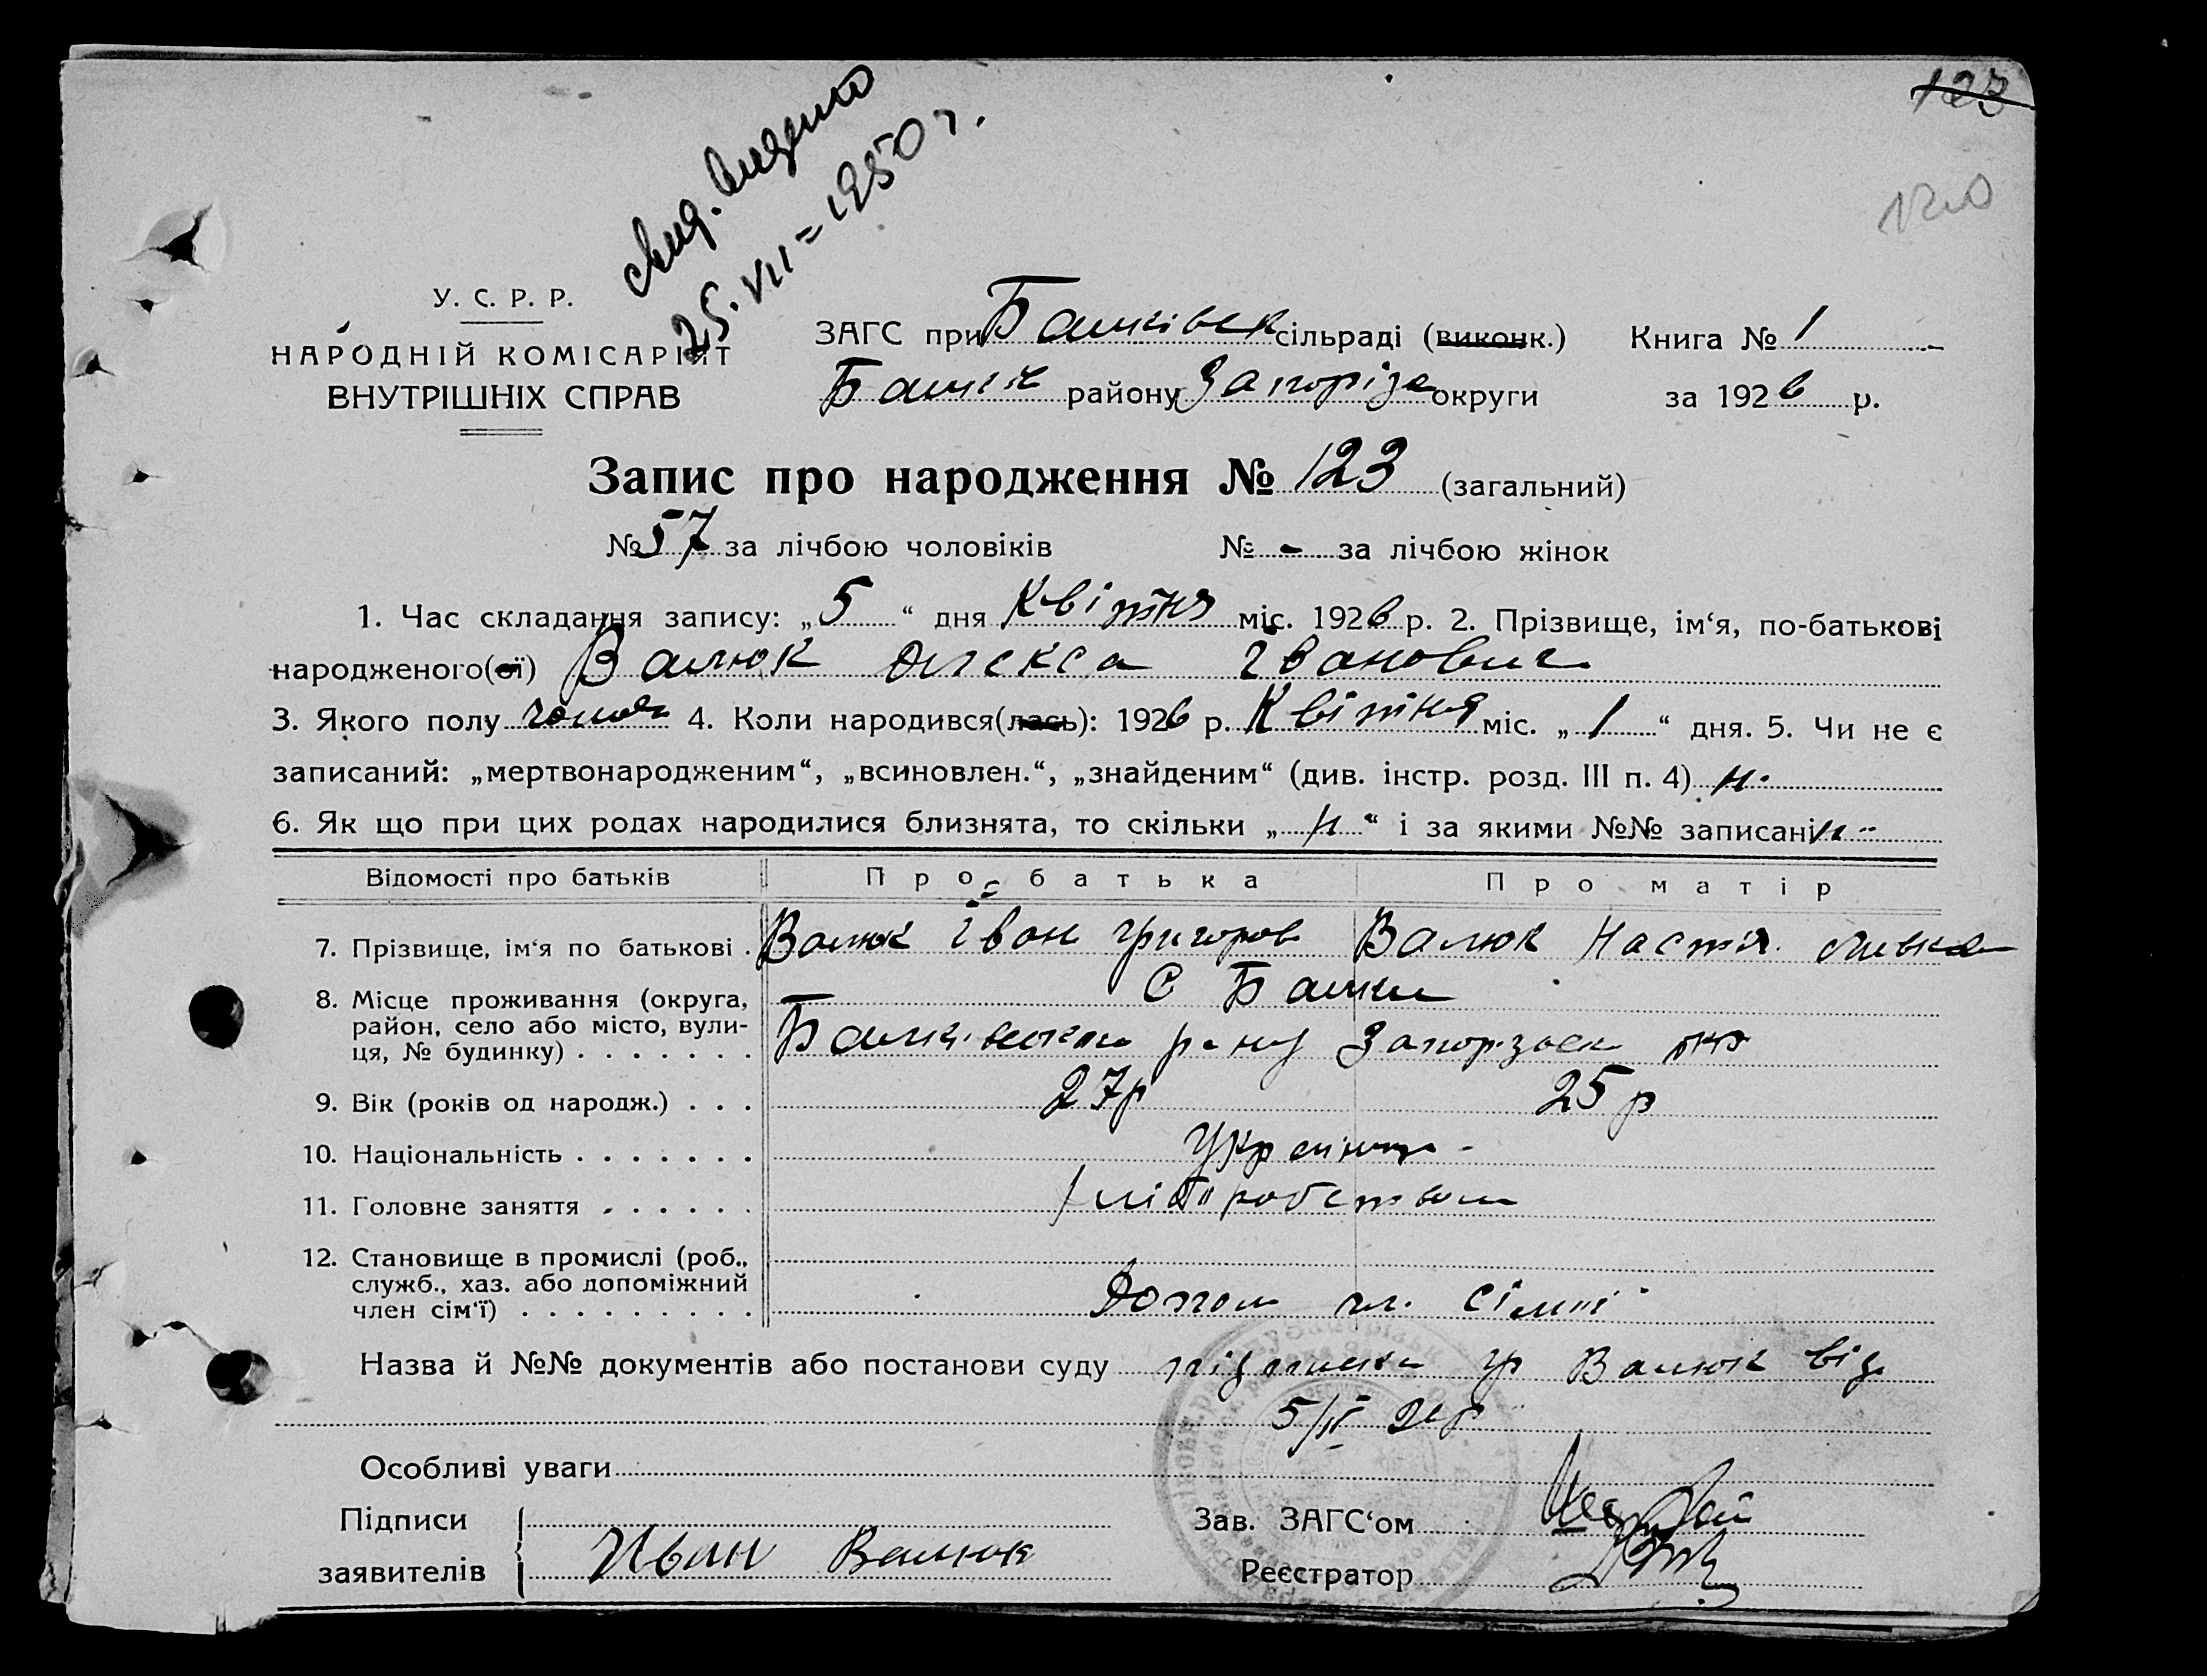 123
120
25.VII=1950 г.
У. С. Р. Р.
НАРОДНІЙ КОМІСАРІЯТ
ВНУТРІШНІХ СПРАВ
ЗАГС при сільраді (виконк.) Книга № 1
району Запоріз округи за 1926 р.
Запис про народження № 123 (загальний)
№ 57 за лічбою чоловіків № - за лічбою жінок
1. Час складання запису: „5“ дня Квітня міс. 1926 р. 2. Прізвище, ім‘я, по-батькові
народженого(ої) Валюк Олекса Іванович
3. Якого полу чолов 4. Коли народився(лась): 1926 р. Квітня міс. „1“ дня. 5. Чи не є
записаний: „мертвонародженим“, „всиновлен.“, „знайденим“ (див. інстр. розд. III п. 4) н.
6. Як що при цих родах народилися близнята, то скільки „н“ і за якими №№ записані н -
Відомості про батьків Про батька Про матір
7. Прізвище, ім‘я по батькові . Валюк Іван Григоров Валюк Настя
8. Місце проживання (округа,
район, село або місто, вули-
ця, № будинку) . . . . . . .
с Балки
р-ну Запорізьк окр
9. Вік (років од народж.) . . . 27р 25р
10. Національність . . . . . . . Українці -
11. Головне заняття . . . . . . хліборобством
12. Становище в промислі (роб.,
служб., хаз. або допоміжний
член сім‘ї) . . . . . . . . . Допом чл. сімії
Назва й №№ документів або постанови суду підписка гр Валюк від
5/IV 26р
Особливі уваги
Підписи Зав. ЗАГС‘ом
заявителів Иван Валюк Реєстратор